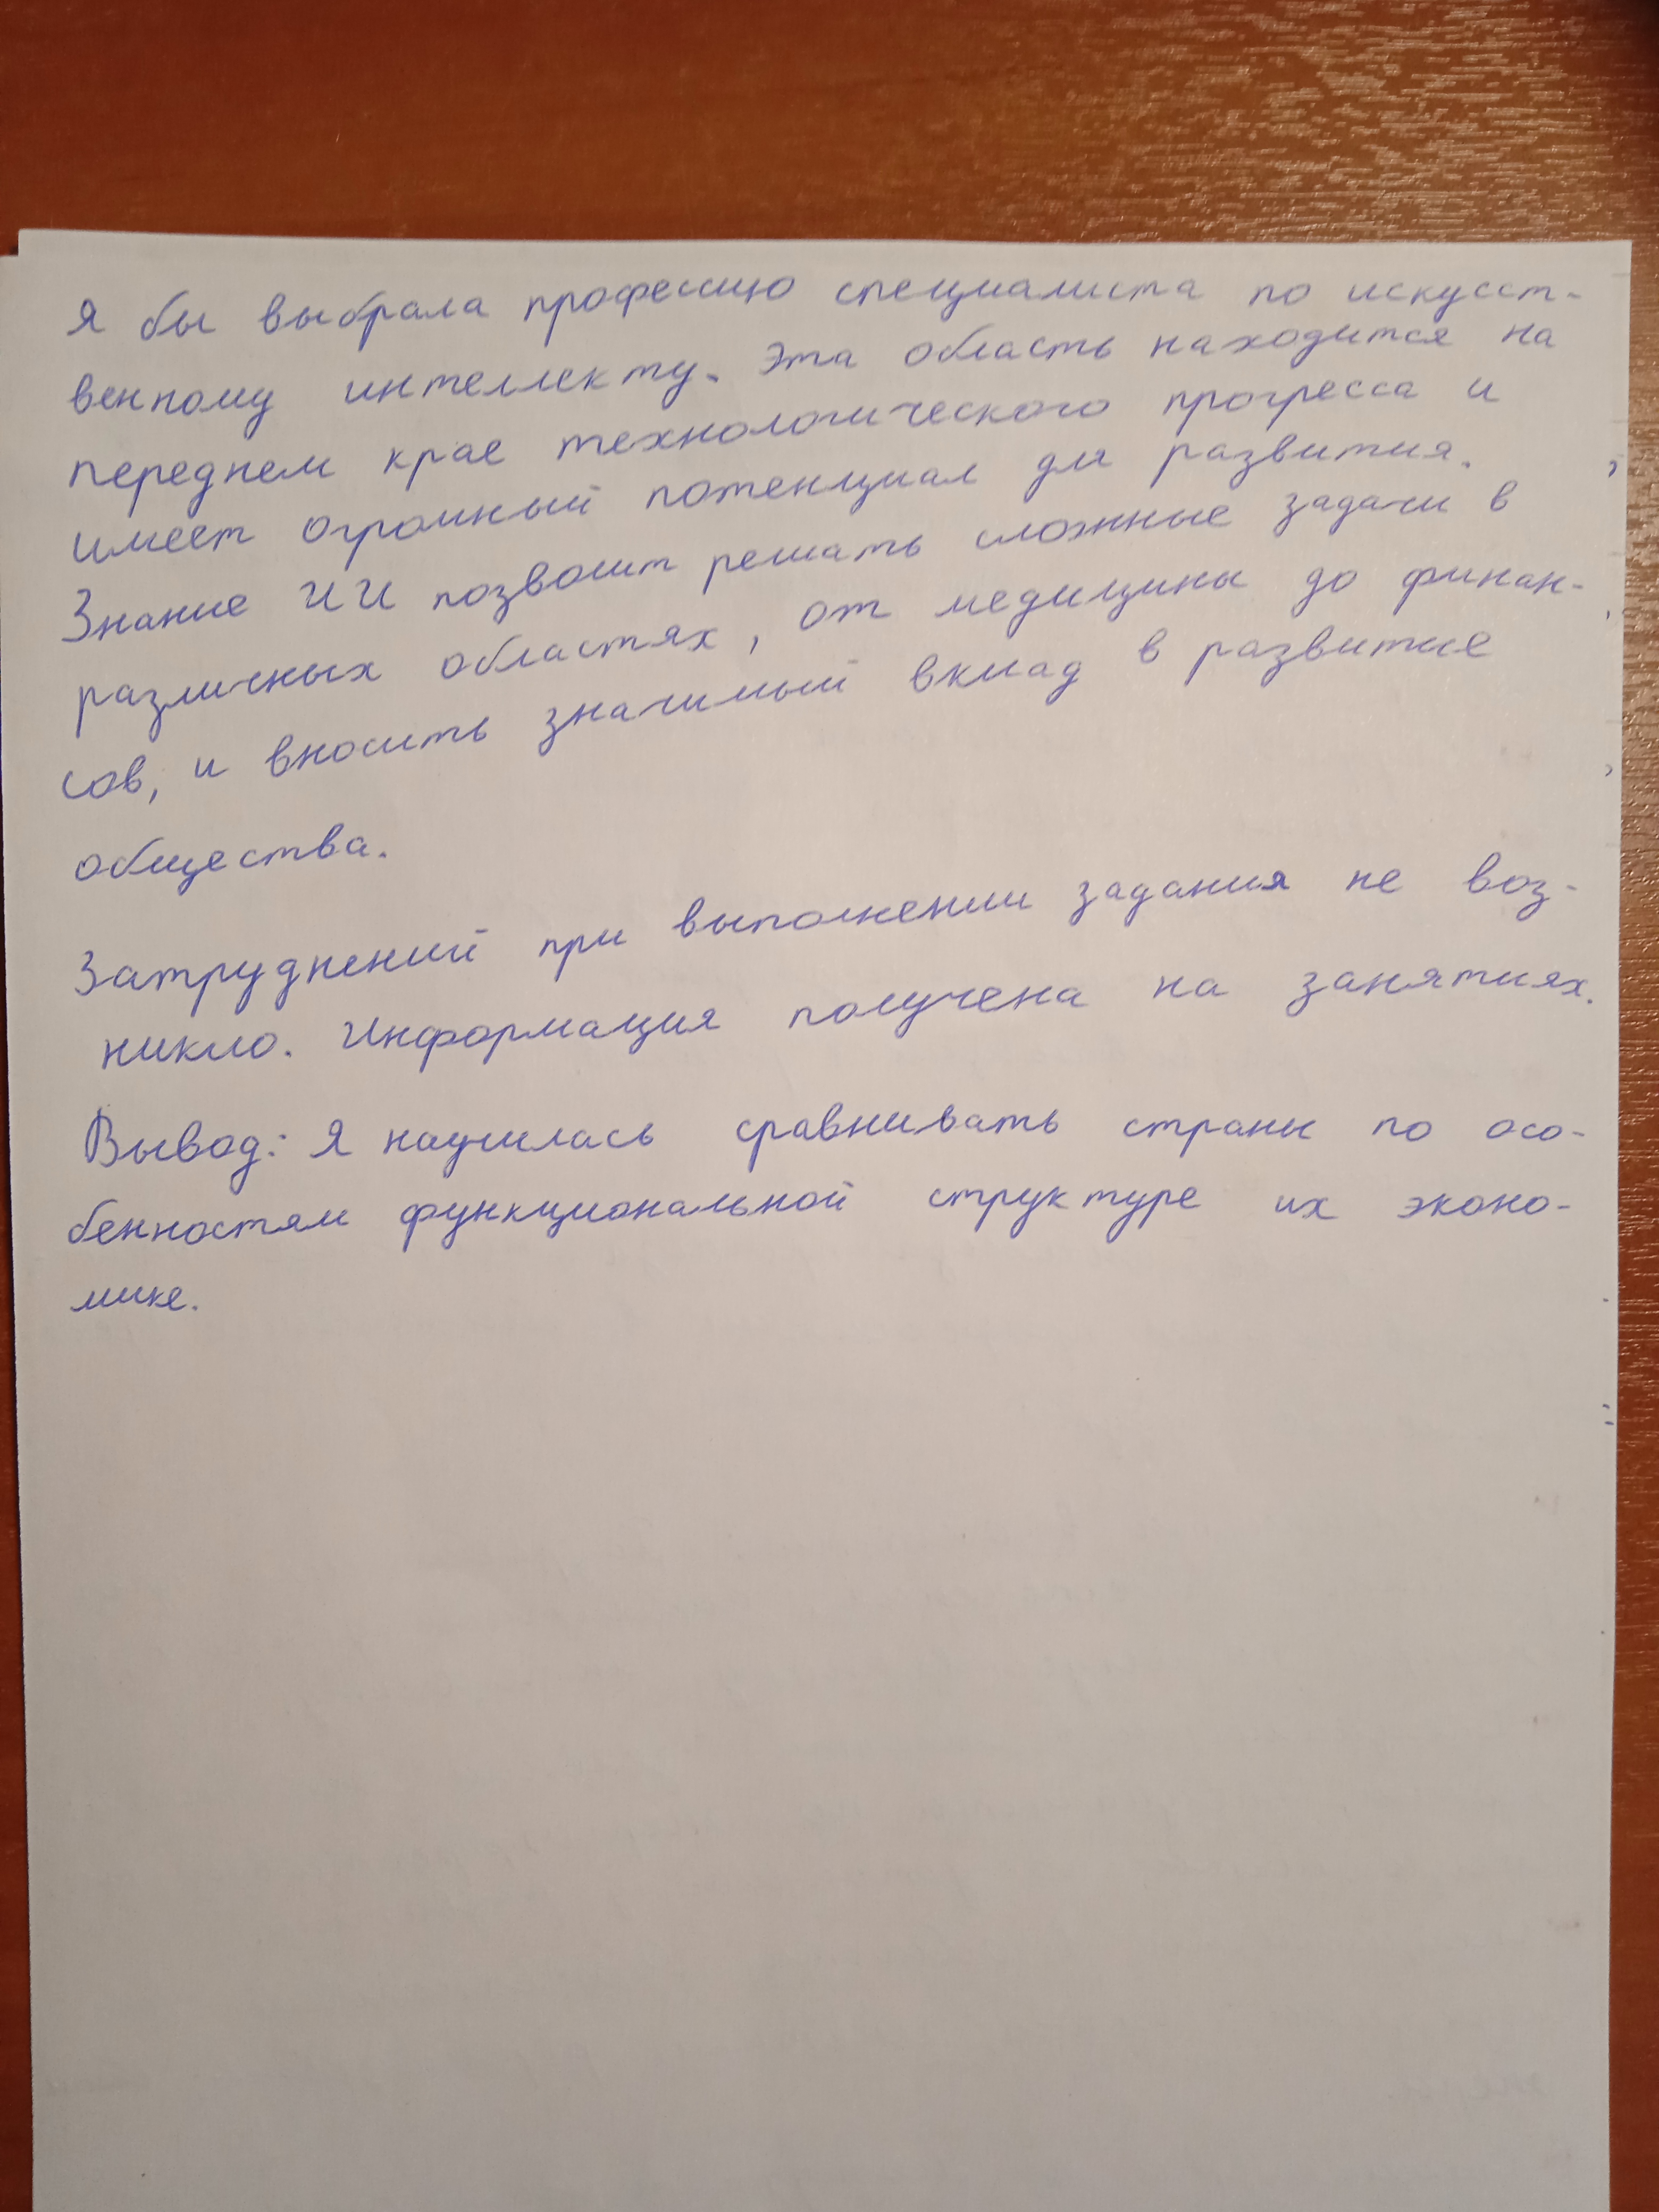 Я бы выбрала профессию специалиста по искусст-
венному интеллекту. Эта область находится на
переднем крае технологического прогресса и
имеет огромный потенциал для развития.
Знание ИИ позволит решать сложные задачи в
различных областях, от медицины до финан-
сов, и вносить значимый вклад в развитие
общества.
Затруднений при выполнении задания не воз-
никло. Информация получена на занятиях.
Вывод: Я научилась сравнивать страны по осо-
бенностям функциональной структуре их эконо-
мике.